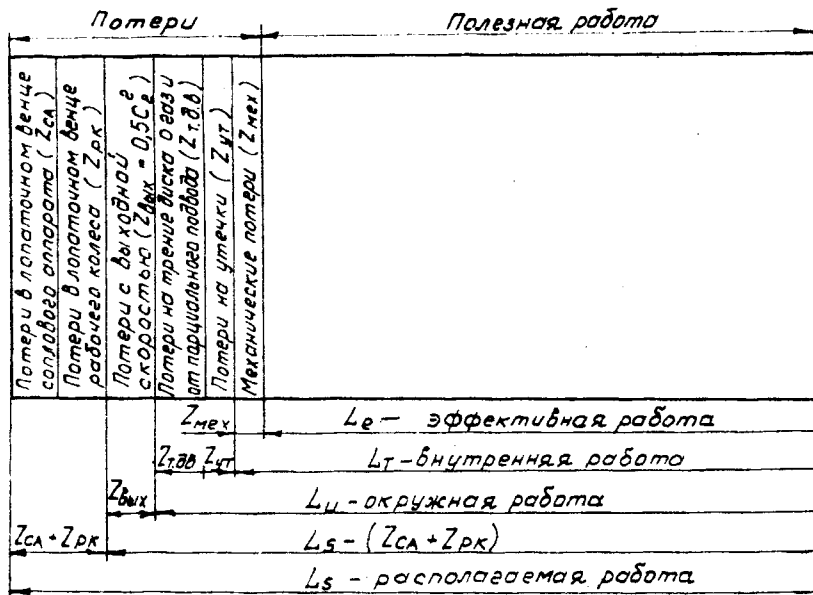 Потери
Полезная работа
Потери в лопаточном венце
соплового аппарата (Zса)
Потери в лопаточном венце
рабочего колеса (Zрк)
Потери с выходной
скоростью (Zвых = 0,5C₂²)
Потери на трение диска о газ и
от парциального подвода (Zт.д.в)
Потери на утечки (Zут)
Механические потери (Zмех)
Zмех
Lе — эффективная работа
Zт.дв Zут
Lт - внутренняя работа
Zвых
Lu - окружная работа
Zса + Zрк
Ls - (Zса + Zрк)
Ls - располагаемая работа